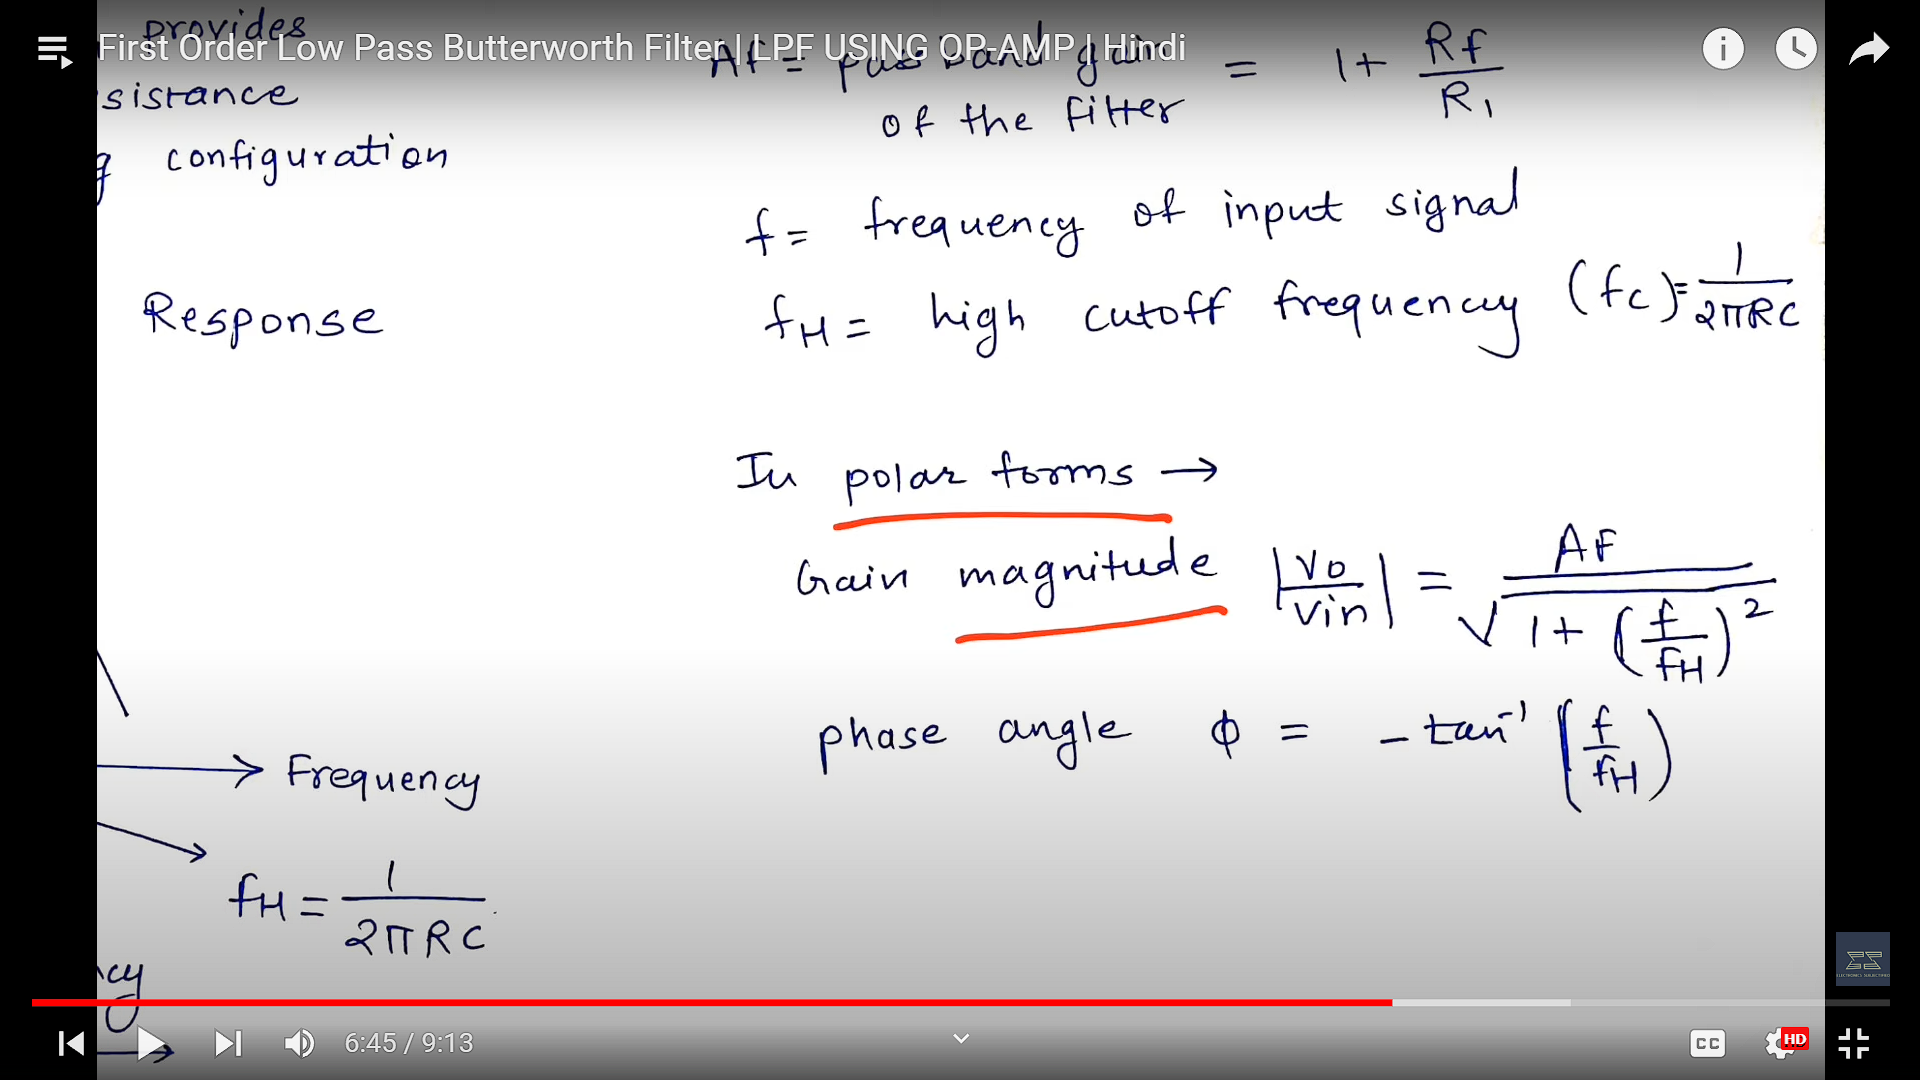 First Order Low Pass Butterworth Filter | LPF USING OP-AMP | Hindi
provides
sistance
g configuration
Response
AF = pass band gain of the filter = 1 + Rf / R1
f = frequency of input signal
fH = high cutoff frequency (fc) = 1 / 2πRC
In polar forms →
Gain magnitude |Vo / Vin| = AF / √(1 + (f / fH)²)
phase angle φ = - tan⁻¹ (f / fH)
Frequency
fH = 1 / 2πRC
ncy
6:45 / 9:13
CC
HD